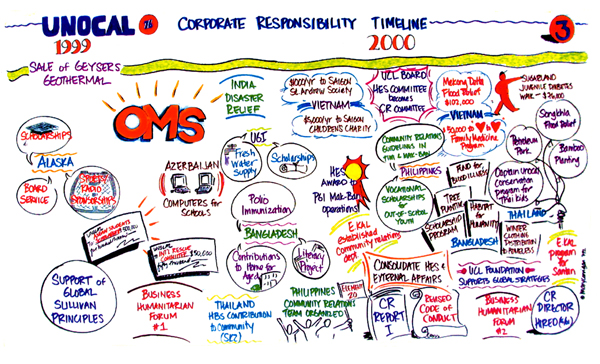 UNOCAL 76 CORPORATE RESPONSIBILITY TIMELINE 3
1999
2000
SALE OF GEYSERS
GEOTHERMAL
OMS
SCHOLARSHIPS
ALASKA
BOARD
SERVICE
SPORTS
RADIO
SPONSORSHIPS
AZERBAIJAN
COMPUTERS for
SCHOOLS
SUPPORT OF
GLOBAL
SULLIVAN
PRINCIPLES
BUSINESS
HUMANITARIAN
FORUM
#1
INDIA
DISASTER
RELIEF
UGI
Fresh
Water
Supply
Scholarships
Polio
Immunization
BANGLADESH
Contributions
to Home for
Aged
Literacy
Project
THAILAND
HBS CONTRIBUTION
to Community
PHILIPPINES
COMMUNITY RELATIONS
TEAM ORGANIZED
$1000/yr to SAIGON
St. Andrew Society
VIETNAM
$5000/yr to SAIGON
CHILDREN'S CHARITY
HES
AWARD to
PGI Mak-Ban
Operations!
E. KAL
established
Community relations
dept.
UCL BOARD
HES COMMITTEE
becomes
CR COMMITTEE
Mekong Delta
Flood Relief
$102,000
VIETNAM
Family Medicine
Program
SUGARLAND
JUVENILE DIABETES
WALK - $26,000
COMMUNITY RELATIONS
GUIDELINES IN
TIWI & MAK-BAN
PHILIPPINES
VOCATIONAL
SCHOLARSHIPS
for
OUT-OF-SCHOOL
YOUTH
TREE
PLANTING
SCHOLARSHIP
PROGRAM
HABITAT for
HUMANITY
BANGLADESH
Petroleum
Park
Songkhla
Flood Relief
Bamboo
Planting
Captain Unocal
Conservation
program for
Thai kids
THAILAND
WINTER
CLOTHING
DISTRIBUTION
to HOMELESS
E. KAL
program
for
Santan
CONSOLIDATE HES &
EXTERNAL AFFAIRS
UCL FOUNDATION
SUPPORTS GLOBAL STRATEGIES
CR
REPORT
I
REVISED
CODE of
CONDUCT
BUSINESS
HUMANITARIAN
FORUM
#2
CR
DIRECTOR
HIRED